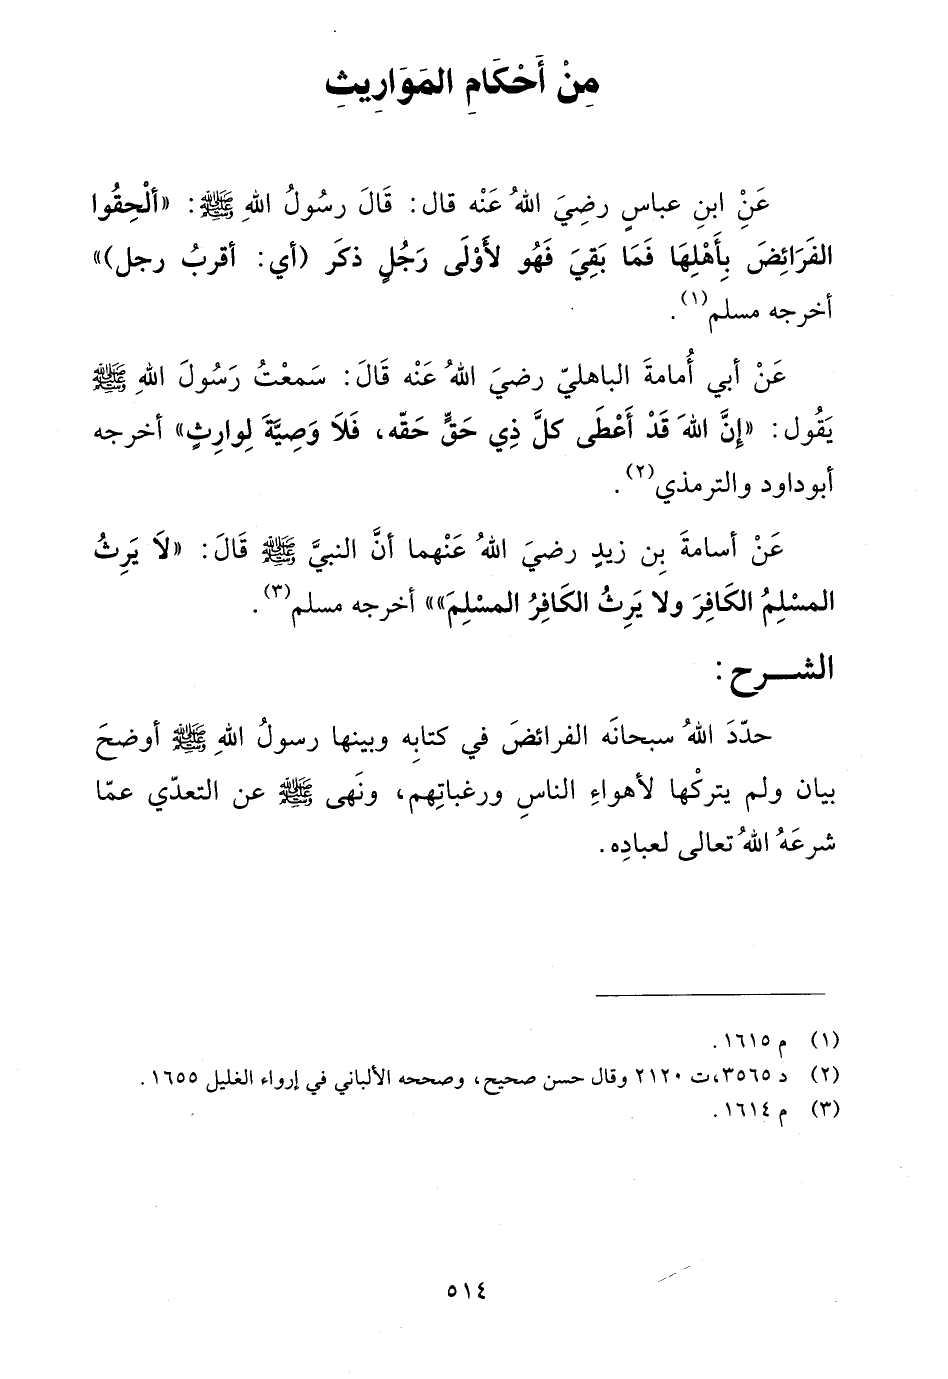 مِنْ أَحْكَامِ المَوَارِيثِ
عَنِ ابنِ عباسٍ رضِيَ اللهُ عَنْه قال: قَالَ رسُولُ اللهِ ﷺ: «ألْحِقُوا
الفَرَائِضَ بِأَهْلِهَا فَمَا بَقِيَ فَهُو لأَوْلَى رَجُلٍ ذكَر (أي: أقربُ رجل)»
أخرجه مسلم(١).
عَنْ أبي أُمامةَ الباهليّ رضيَ اللهُ عَنْه قَالَ: سَمعْتُ رَسُولَ اللهِ ﷺ
يَقُول: «إنَّ اللهَ قَدْ أَعْطَى كلَّ ذِي حَقٍّ حَقّه، فَلَا وَصِيَّةَ لِوارِثٍ» أخرجه
أبوداود والترمذي(٢).
عَنْ أسامةَ بِن زيدٍ رضيَ اللهُ عَنْهما أنَّ النبيَّ ﷺ قَالَ: «لاَ يَرِثُ
المسْلِمُ الكَافِرَ ولا يَرِثُ الكَافِرُ المسْلِمَ»» أخرجه مسلم(٣).
الشـــرح:
حدّدَ اللهُ سبحانَه الفرائضَ في كتابِه وبينها رسولُ اللهِ ﷺ أوضحَ
بيان ولم يتركْها لأهواءِ الناسِ ورغباتِهم، ونَهى ﷺ عن التعدّي عمّا
شرعَهُ اللهُ تعالى لعبادِه.
(١) م ١٦١٥.
(٢) د ٣٥٦٥،ت ٢١٢٠ وقال حسن صحيح، وصححه الألباني في إرواء الغليل ١٦٥٥.
(٣) م ١٦١٤.
٥١٤